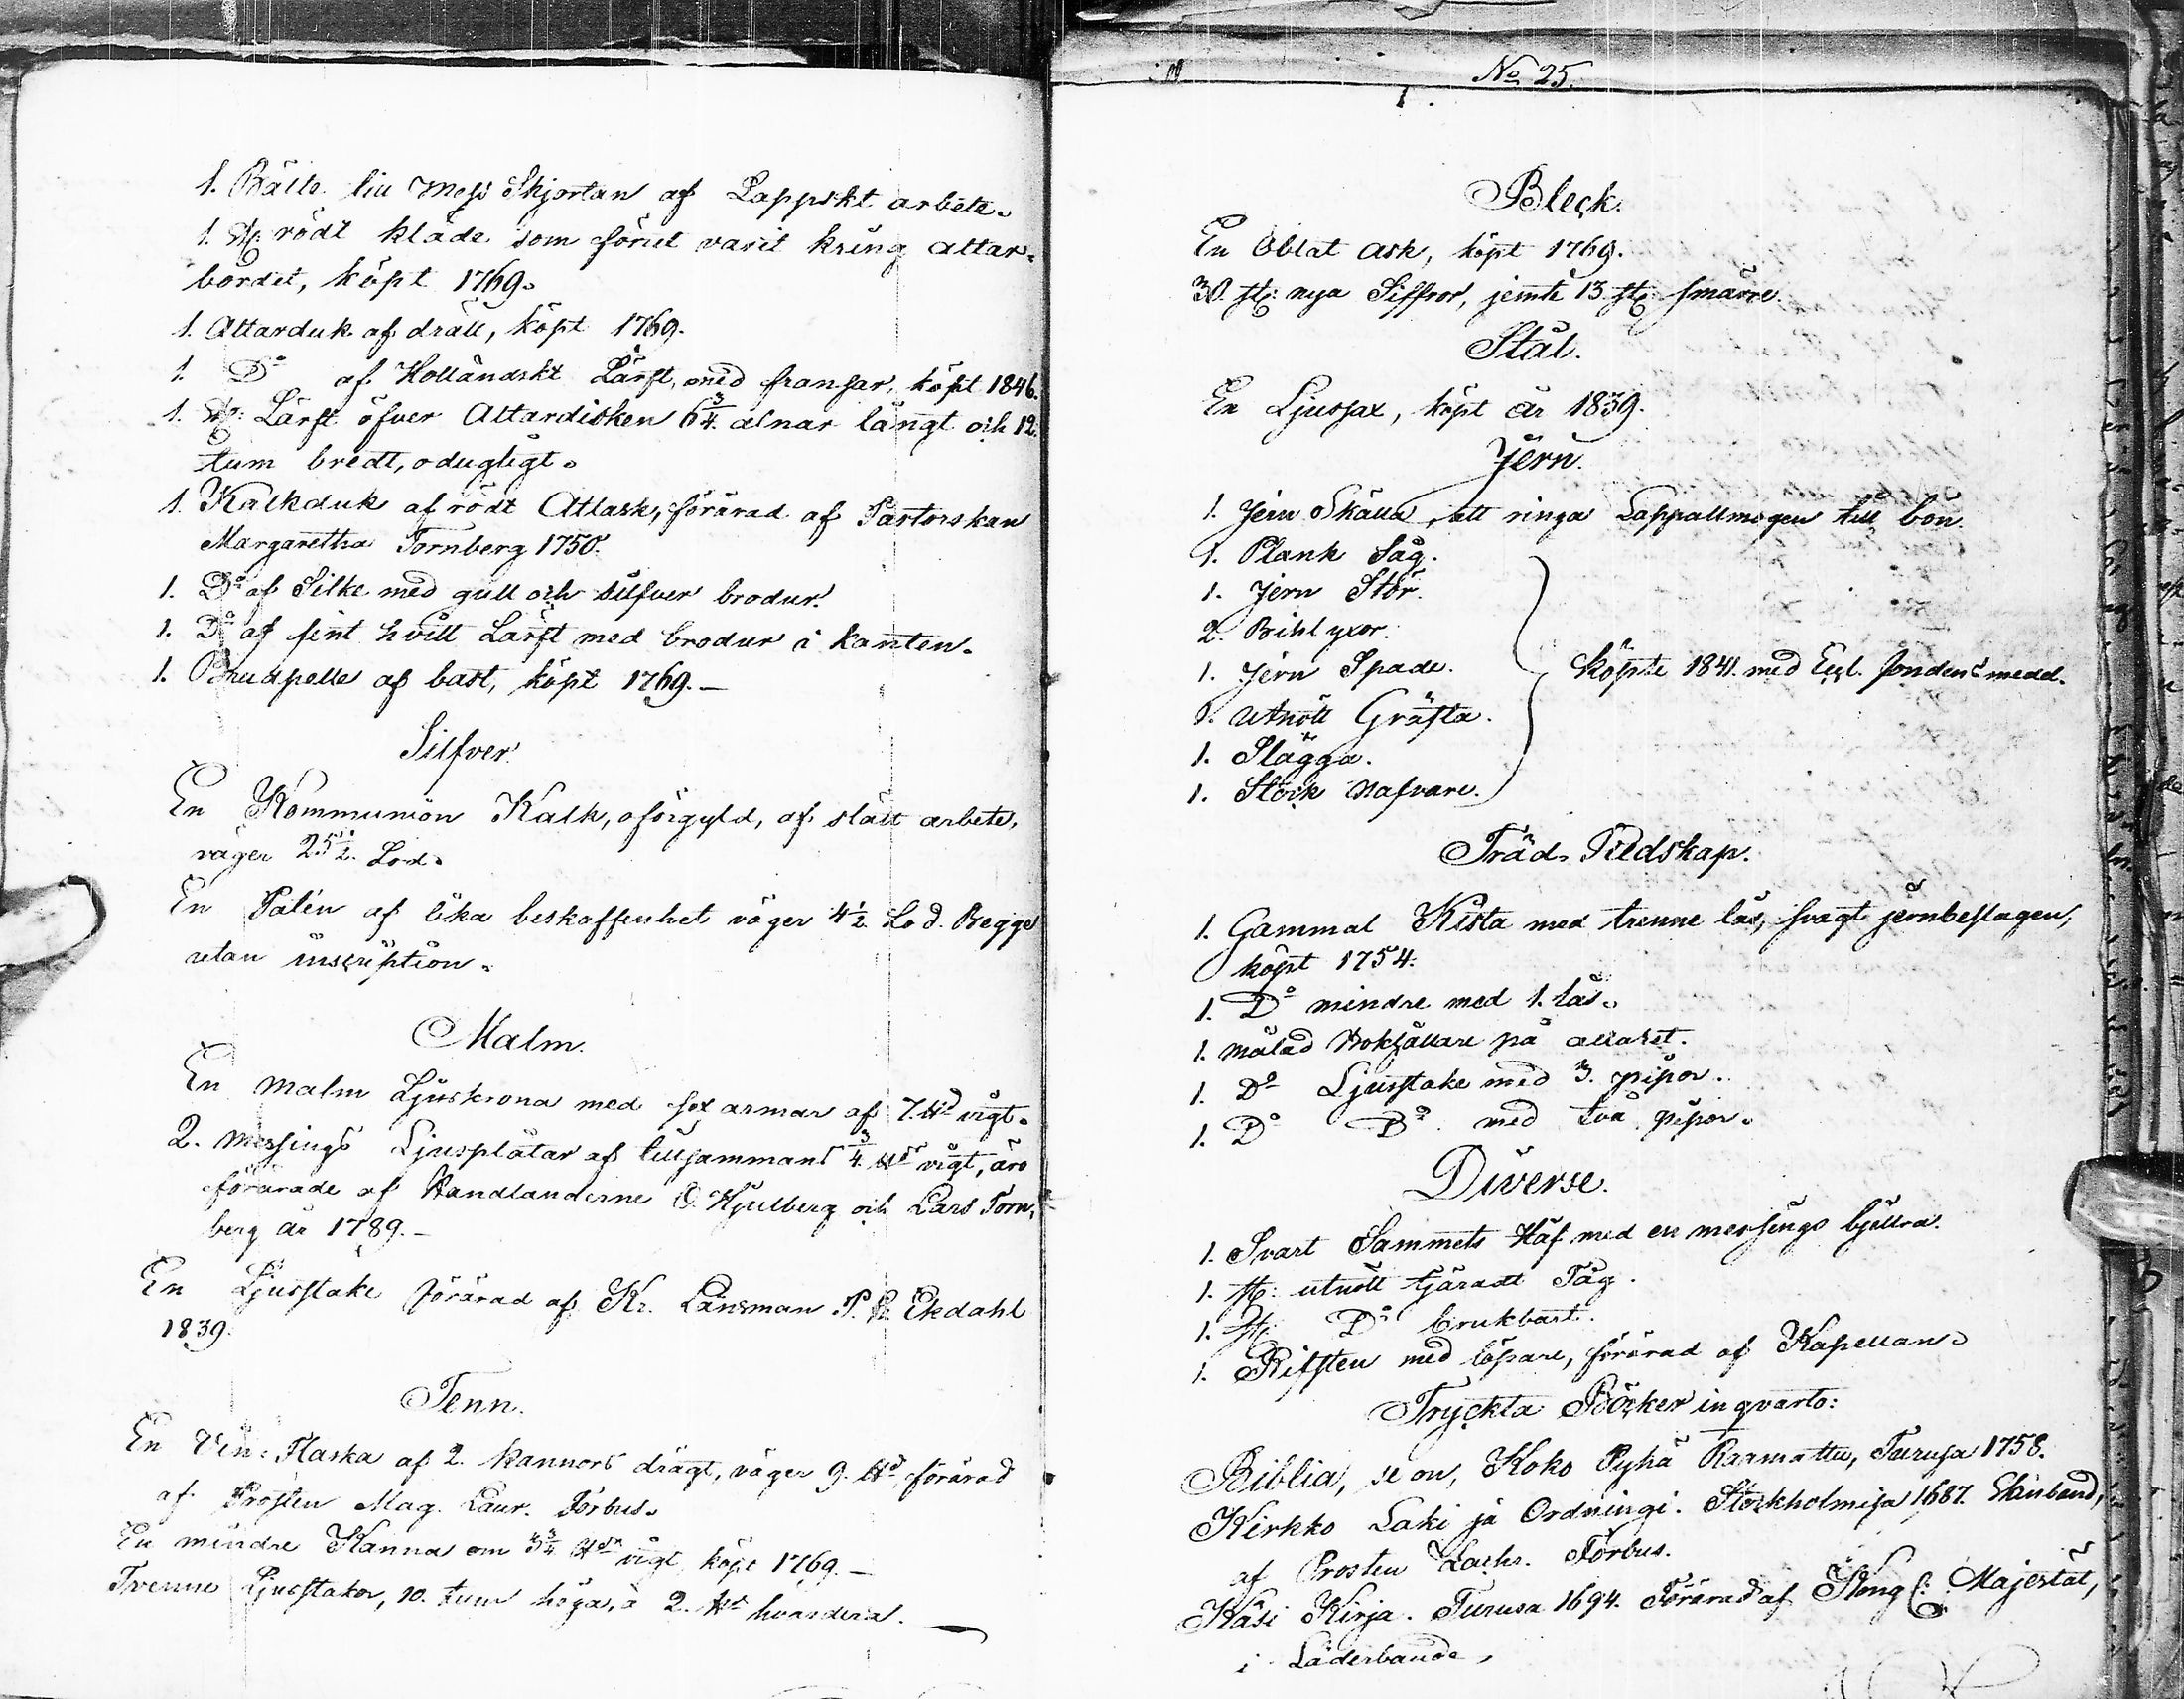 1. Bälte till Mess Skjortan af Lappskt arbete.
1. st: rödt kläde som förut varit kring altar-
bordet, köpt 1769.
1. Altarduk af dräll, köpt 1769.
1. Do af Holländskt Lärft, med fransar, köpt 1846.
1. st: Lärft öfver Altardisken 6 3/4 alnar långt och 12.
tum bredt, odugligt.
1. Kalkduk af rödt Atlask, förärad af Pastorskan
Margaretha Tornberg 1750.
1. Do af Silke med gull och silfver brodur.
1. Do af fint hvitt Lärft med brodur i kanten.
1. Brudpelle af bast, köpt 1769. —
Silfver.
En Kommunion Kalk, oförgyld, af slätt arbete,
väger 25 1/2. Lod.
En Patén af lika beskaffenhet väger 4 1/2 Lod. Begge
utan inscription.
Malm.
En Malm Ljuskrona med sex armar af 7. ℔d vigt.
2. Messings Ljusplåtar af tillsammans 3/4 ℔ds vigt, äro
förärade af Handlanderne O. Hjulberg och Lars Torn-
berg år 1789. —
En Ljusstake förärad af Kr. Länsman P. Ekdahl
1839.
Tenn.
En Vin-Flaska af 2. kannors drägt, väger 9. ℔d, förärad
af Prosten Mag. Laur. Forbus.
En mindre Kanna om 3 3/4 ℔ds vigt, köpt 1769. —
Tvenne Ljusstakar, 10. tum höga, à 2. ℔d hvardera. —
No 25.
Bleck.
En Oblat ask, köpt 1769.
30. st: nya Siffror, jemte 13 st: smärre.
Stål.
En Ljussax, köpt år 1839.
Jern.
1. Jern Skälla, att ringa Lappallmogen till bön.
1. Plank Såg.
1. Jern Stör.
2. Bihl yxor.
1. Jern Spade.
köpte 1841. med Eccl. fondens medel.
1. Utnött Gräfta.
1. Slägga.
1. Stock Nafvare.
Träd-Redskap.
1. Gammal Kista med trenne lås, svagt jernbeslagen,
köpt 1754.
1. Do mindre med 1. lås.
1. målad Bokhållare på altaret.
1. Do Ljusstake med 3. pipor.
1. Do Do med två pipor.
Diverse.
1. Svart Sammets Håf med en messings bjellra.
1. st: utnött tjäradt Tåg.
1. st: Do brukbart.
1. Rifsten med löpare, förärad af Kapellan.
Tryckta Böcker in qvarto:
Biblia, se on, Koko Pyhä Raamattu, Turusa 1758.
Kirkko Laki ja Ordningi. Stockholmisa 1687. Skinband,
af Prosten Zachr. Forbus.
Käsi Kirja. Turusa 1694. Förärad af Kongl: Majestät,
i Läderbande,